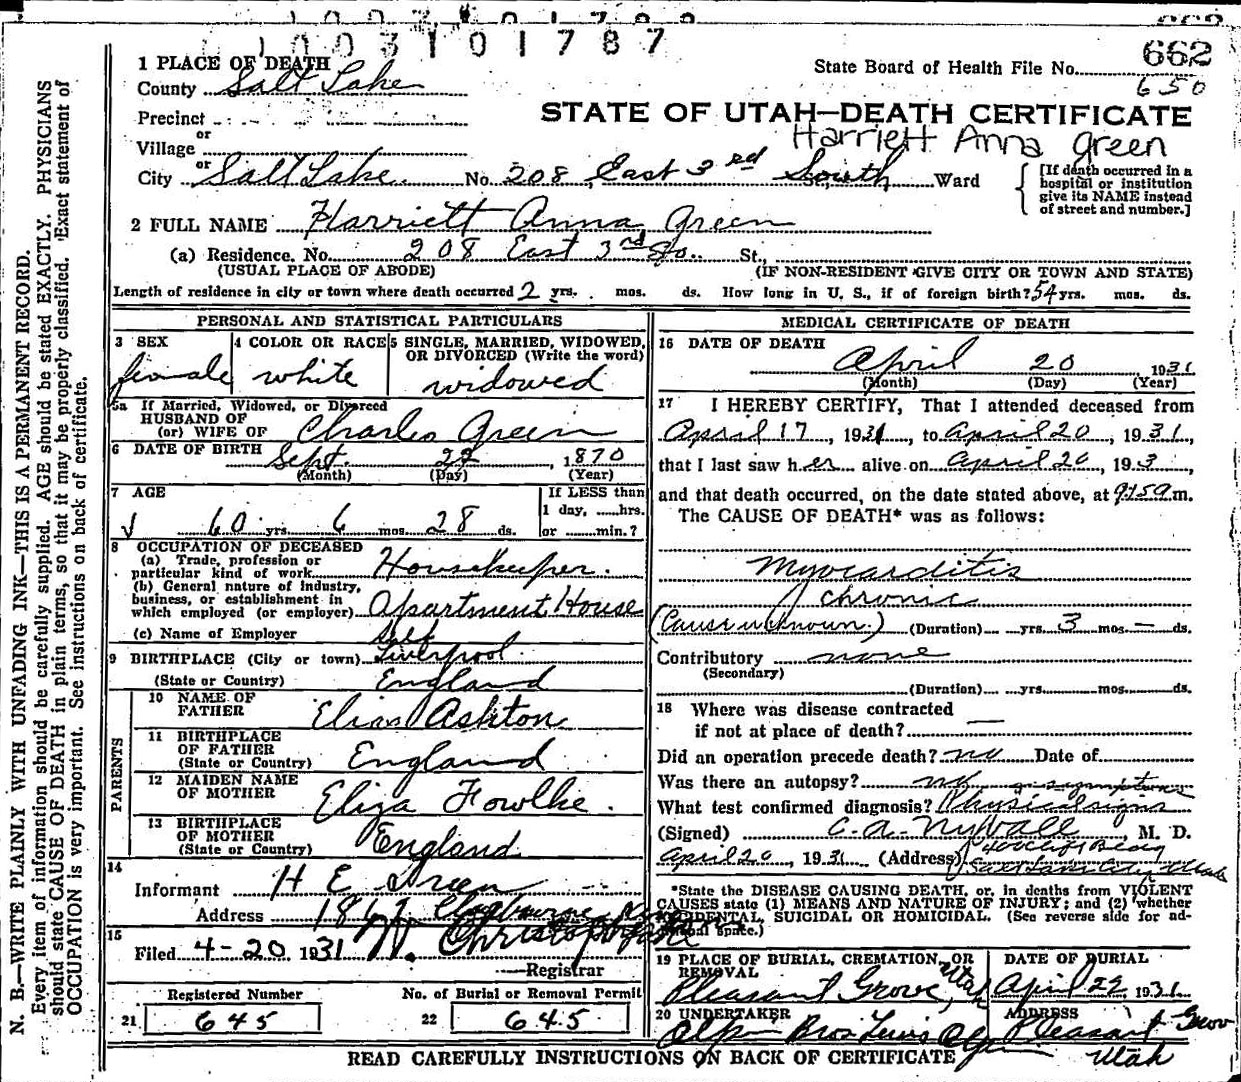 1003101787
662
650
1 PLACE OF DEATH
State Board of Health File No.
County Salt Lake
STATE OF UTAH—DEATH CERTIFICATE
Harriett Anna Green
Precinct
or
Village
or
City Salt Lake No. 208 East 3rd South Ward
[If death occurred in a
hospital or institution
give its NAME instead
of street and number.]
2 FULL NAME Harriett Anna Green
(a) Residence. No. 208 East 3rd So. St.,
(USUAL PLACE OF ABODE) (IF NON-RESIDENT GIVE CITY OR TOWN AND STATE)
Length of residence in city or town where death occurred 2 yrs. mos. ds. How long in U. S., if of foreign birth? 54 yrs. mos. ds.
PERSONAL AND STATISTICAL PARTICULARS
3 SEX 4 COLOR OR RACE 5 SINGLE, MARRIED, WIDOWED,
OR DIVORCED (Write the word)
female white widowed
5a If Married, Widowed, or Divorced
HUSBAND OF
(or) WIFE OF Charles Green
6 DATE OF BIRTH Sept. 22, 1870
(Month) (Day) (Year)
7 AGE If LESS than
1 day, ......hrs.
60 yrs. 6 mos. 28 ds. or ......min.?
8 OCCUPATION OF DECEASED
(a) Trade, profession or
particular kind of work Housekeeper.
(b) General nature of industry,
business, or establishment in
which employed (or employer) Apartment House
(c) Name of Employer Self
9 BIRTHPLACE (City or town) Liverpool
(State or Country) England
PARENTS
10 NAME OF
FATHER Elias Ashton
11 BIRTHPLACE
OF FATHER
(State or Country) England
12 MAIDEN NAME
OF MOTHER Eliza Fowlke.
13 BIRTHPLACE
OF MOTHER
(State or Country) England
14
Informant H E Green
Address
15
Filed 4-20 1931
Registrar
Registered Number No. of Burial or Removal Permit
21 645 22 645
MEDICAL CERTIFICATE OF DEATH
16 DATE OF DEATH
April 20, 1931
(Month) (Day) (Year)
17 I HEREBY CERTIFY, That I attended deceased from
April 17, 1931, to April 20, 1931,
that I last saw her alive on April 20, 193 ,
and that death occurred, on the date stated above, at 9:59 m.
The CAUSE OF DEATH* was as follows:
Myocarditis
chronic
(Cause unknown.) (Duration) yrs. 3 mos. – ds.
Contributory none
(Secondary)
(Duration) yrs. mos. ds.
18 Where was disease contracted
if not at place of death? —
Did an operation precede death? no Date of
Was there an autopsy? no
What test confirmed diagnosis? Physical signs & symptoms
(Signed) C. A. Nyvall, M. D.
April 20, 1931 (Address)
Salt Lake City, Utah
*State the DISEASE CAUSING DEATH, or, in deaths from VIOLENT
CAUSES state (1) MEANS AND NATURE OF INJURY; and (2) whether
ACCIDENTAL, SUICIDAL OR HOMICIDAL. (See reverse side for ad-
ditional space.)
19 PLACE OF BURIAL, CREMATION, OR
REMOVAL DATE OF BURIAL
Pleasant Grove, Utah April 22, 1931
20 UNDERTAKER ADDRESS
Pleasant Grove
Utah
READ CAREFULLY INSTRUCTIONS ON BACK OF CERTIFICATE
N. B.—WRITE PLAINLY WITH UNFADING INK—THIS IS A PERMANENT RECORD.
Every item of information should be carefully supplied. AGE should be stated EXACTLY. PHYSICIANS
should state CAUSE OF DEATH in plain terms, so that it may be properly classified. Exact statement of
OCCUPATION is very important. See instructions on back of certificate.